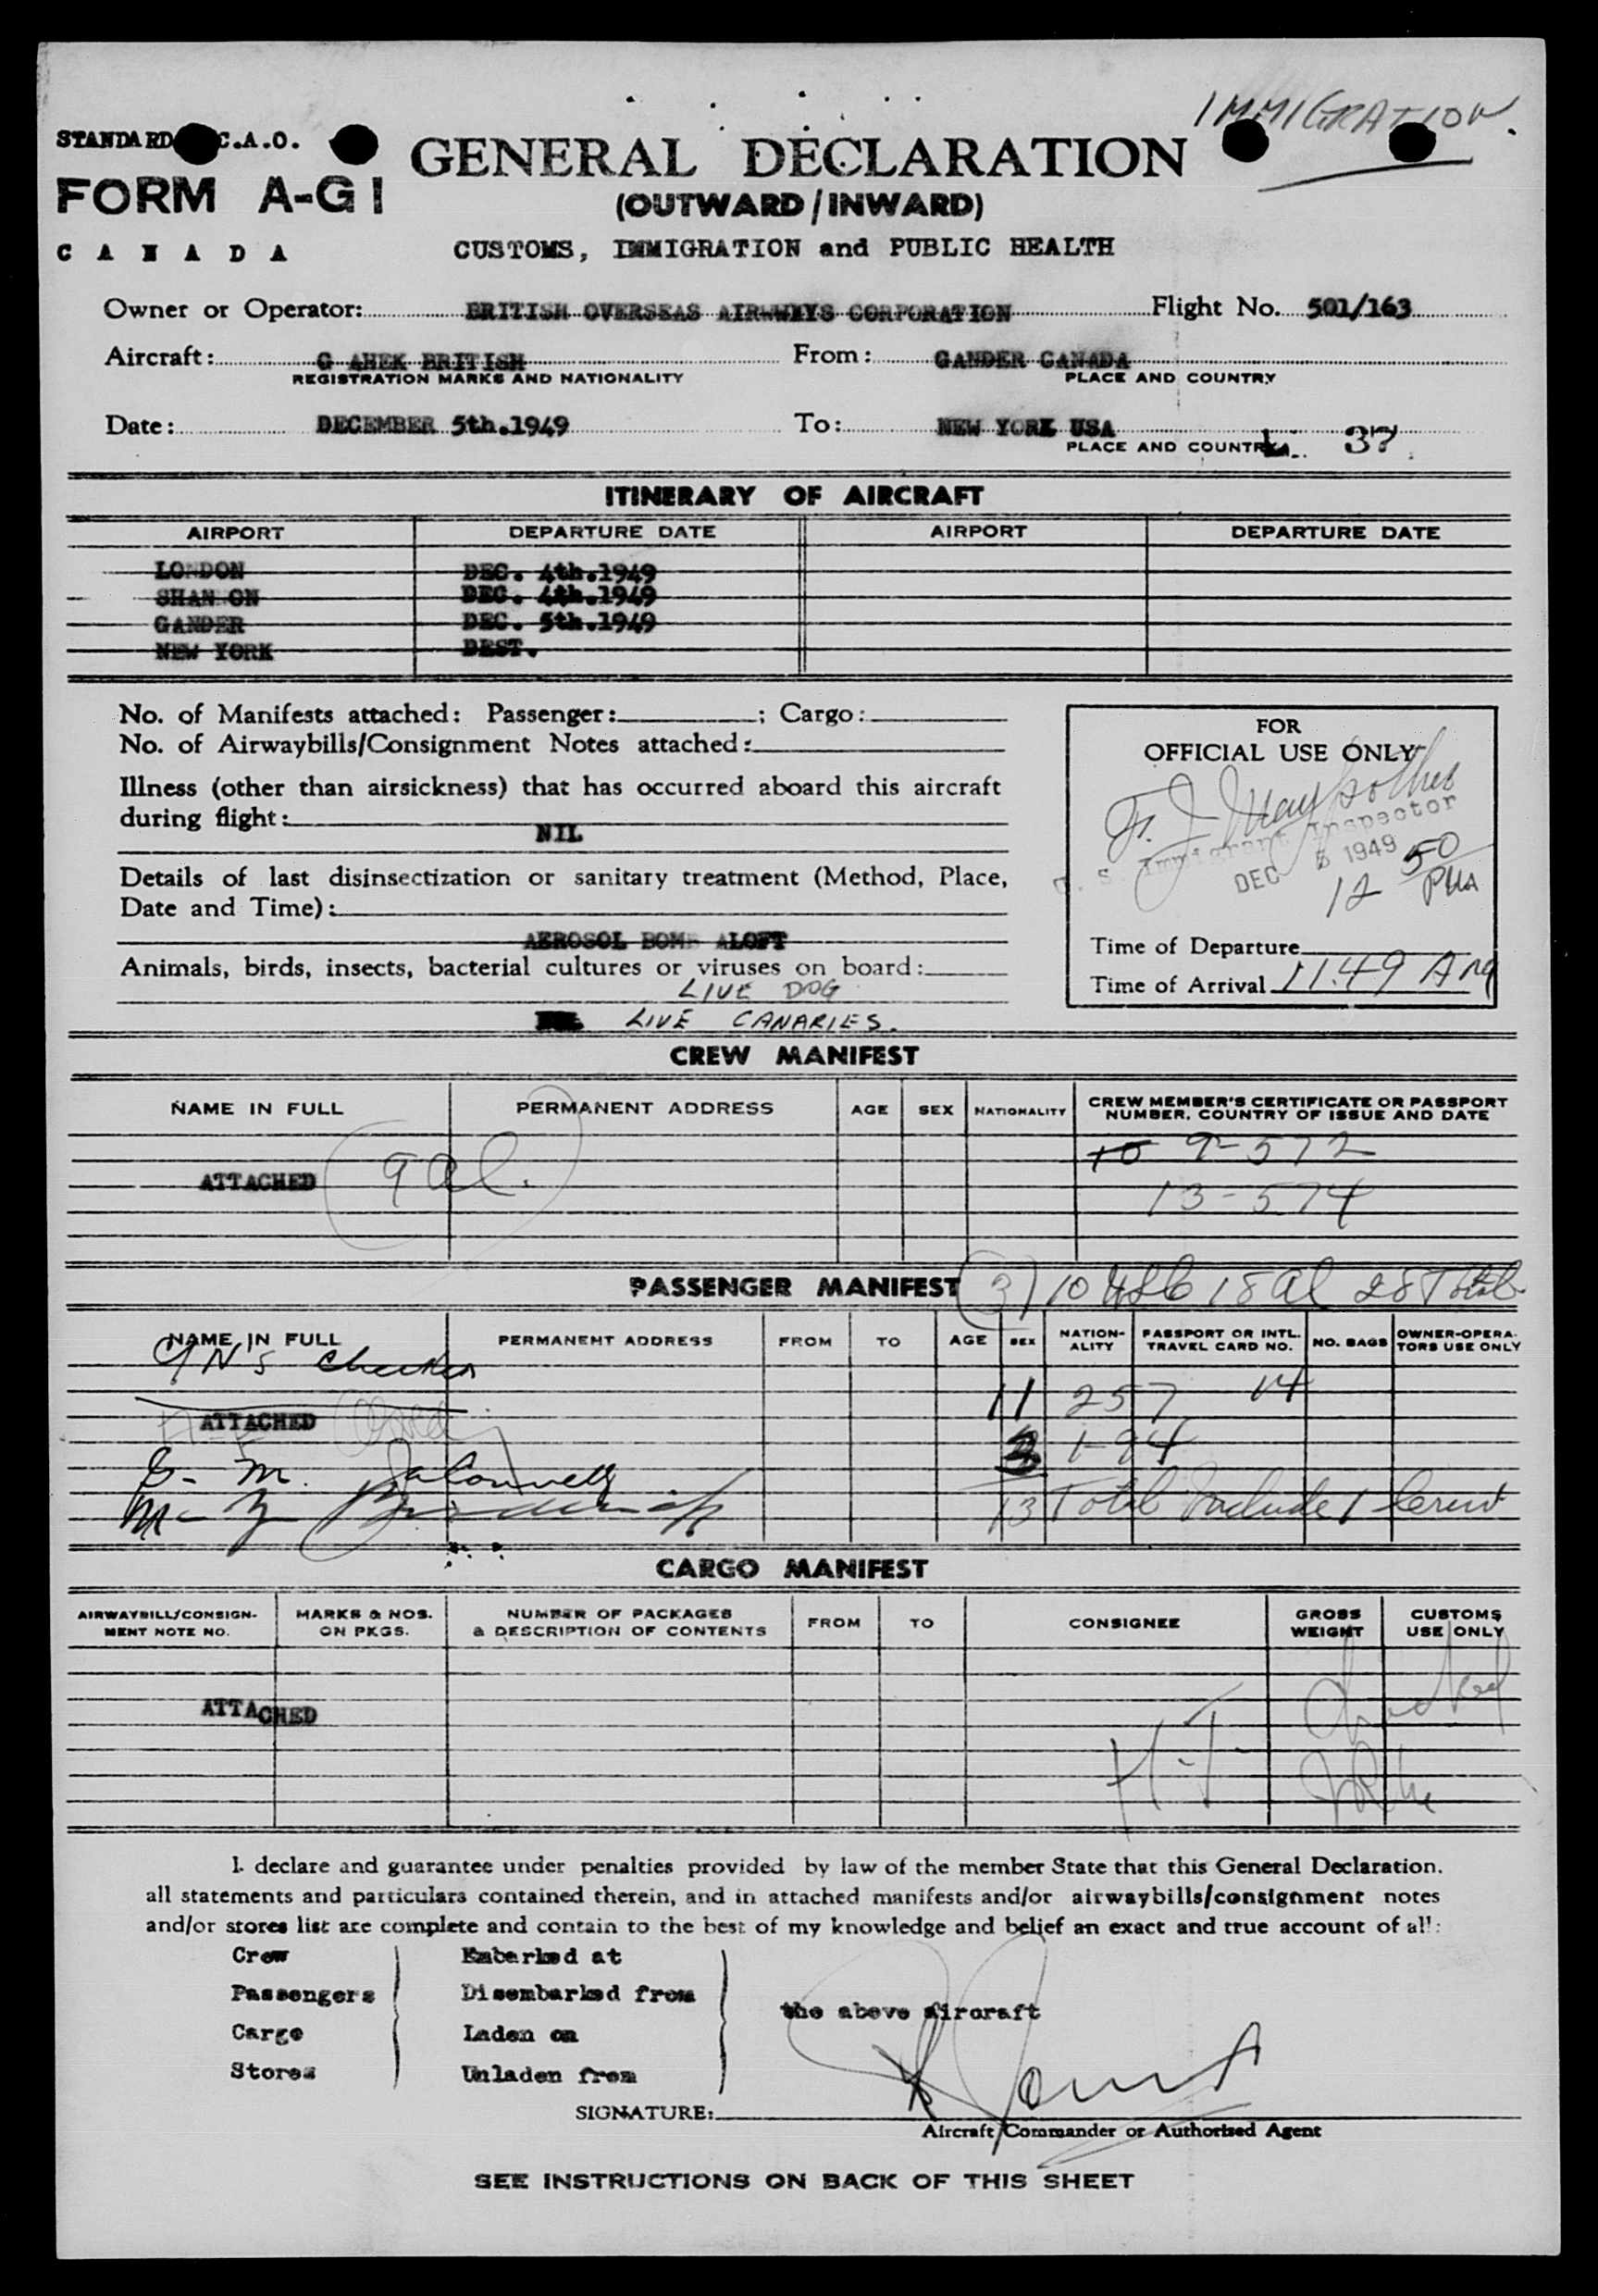 IMMIGRATION.
STANDARD C.A.O.
FORM A-G1
GENERAL DECLARATION
(OUTWARD/INWARD)
CANADA
CUSTOMS, IMMIGRATION and PUBLIC HEALTH
Owner or Operator: BRITISH OVERSEAS AIRWAYS CORPORATION Flight No. 501/163
Aircraft: G AHEK BRITISH From: GANDER CANADA
REGISTRATION MARKS AND NATIONALITY PLACE AND COUNTRY
Date: DECEMBER 5th.1949 To: NEW YORK USA
PLACE AND COUNTRY 37
ITINERARY OF AIRCRAFT
AIRPORT DEPARTURE DATE AIRPORT DEPARTURE DATE
LONDON DEC. 4th.1949
SHAN ON DEC. 4th.1949
GANDER DEC. 5th.1949
NEW YORK DEST.
No. of Manifests attached: Passenger: ; Cargo:
No. of Airwaybills/Consignment Notes attached:
Illness (other than airsickness) that has occurred aboard this aircraft
during flight:
NIL
Details of last disinsectization or sanitary treatment (Method, Place,
Date and Time):
AEROSOL BOMB ALOFT
Animals, birds, insects, bacterial cultures or viruses on board:
LIVE DOG
LIVE CANARIES.
FOR
OFFICIAL USE ONLY
F. J.
U. S. Immigrant Inspector
DEC 5 1949
12 50
Time of Departure
Time of Arrival 11.49 AM
CREW MANIFEST
NAME IN FULL PERMANENT ADDRESS AGE SEX NATIONALITY CREW MEMBER'S CERTIFICATE OR PASSPORT
NUMBER, COUNTRY OF ISSUE AND DATE
10 9-572
ATTACHED 9 al. 13-574
PASSENGER MANIFEST (3) 10 USC 18 al 28 Total
NAME IN FULL PERMANENT ADDRESS FROM TO AGE SEX NATION-
ALITY PASSPORT OR INTL.
TRAVEL CARD NO. NO. BAGS OWNER-OPERA-
TORS USE ONLY
11 257 14
ATTACHED
1-94
13 Total Include 1 Crew
CARGO MANIFEST
AIRWAYBILL/CONSIGN-
MENT NOTE NO. MARKS & NOS.
ON PKGS. NUMBER OF PACKAGES
& DESCRIPTION OF CONTENTS FROM TO CONSIGNEE GROSS
WEIGHT CUSTOMS
USE ONLY
Checked
ATTACHED
I. declare and guarantee under penalties provided by law of the member State that this General Declaration.
all statements and particulars contained therein, and in attached manifests and/or airwaybills/consignment notes
and/or stores list are complete and contain to the best of my knowledge and belief an exact and true account of all:
Crew Embarked at
Passengers Disembarked from
the above aircraft
Cargo Laden on
Stores Unladen from
SIGNATURE:
Aircraft Commander or Authorised Agent
SEE INSTRUCTIONS ON BACK OF THIS SHEET